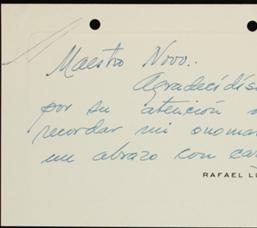 Maestro Novo.
Agradecidís
por su atención
recordar mi onomá
un abrazo con ca
RAFAEL L